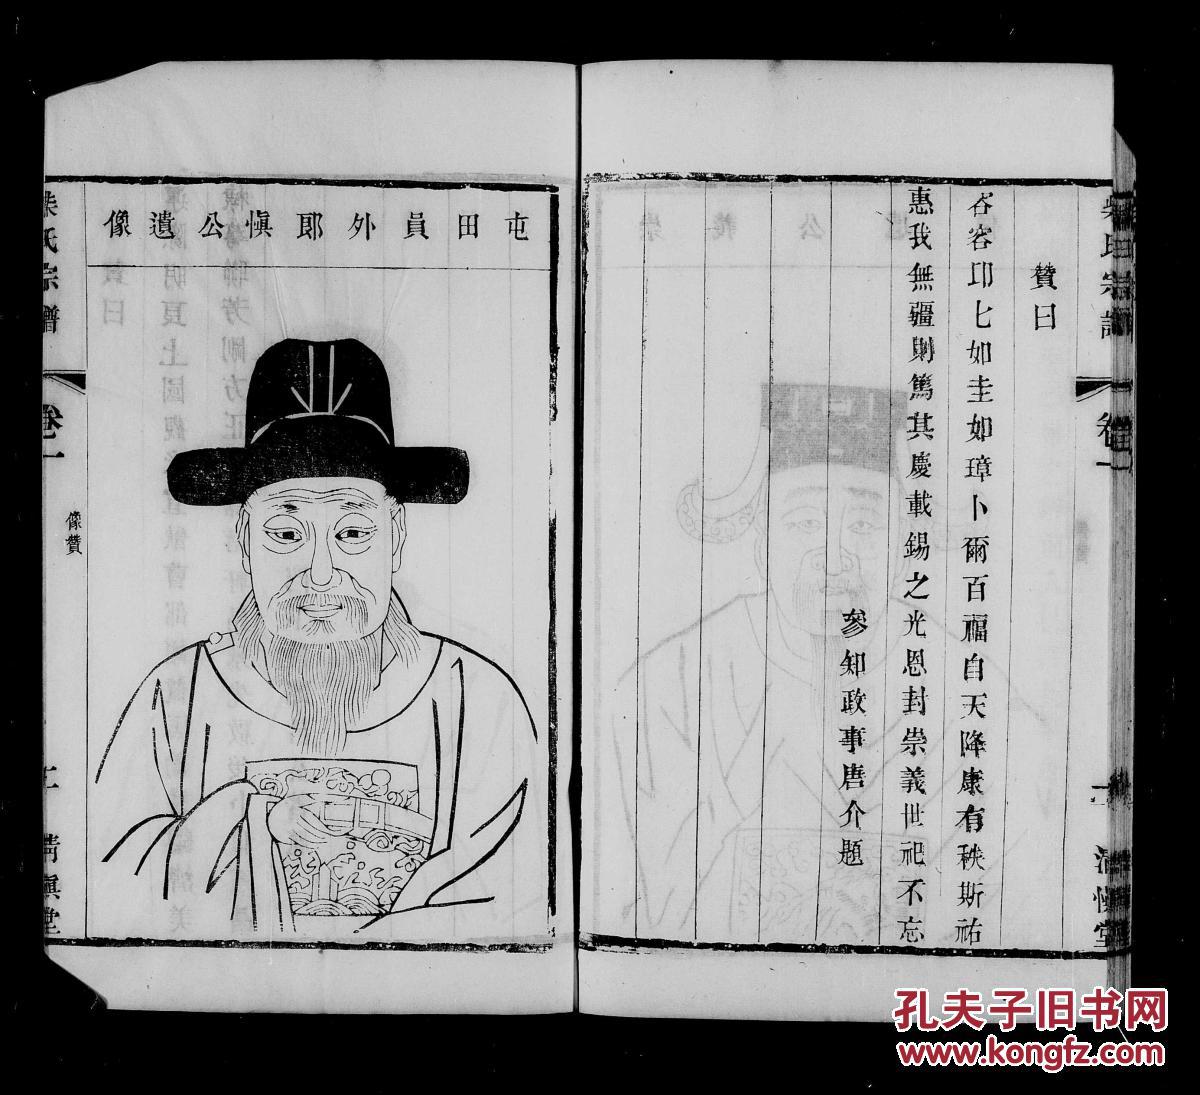 柴氏宗譜
卷一
清慎堂
贊曰
容卭匕如圭如璋卜爾百福自天降康有秩斯祐
惠我無疆則篤其慶載錫之光恩封崇義世祀不忘
參知政事唐介題
屯田員外郎慎公遺像
柴氏宗譜
卷一
像贊
清慎堂
孔夫子旧书网
www.kongfz.com